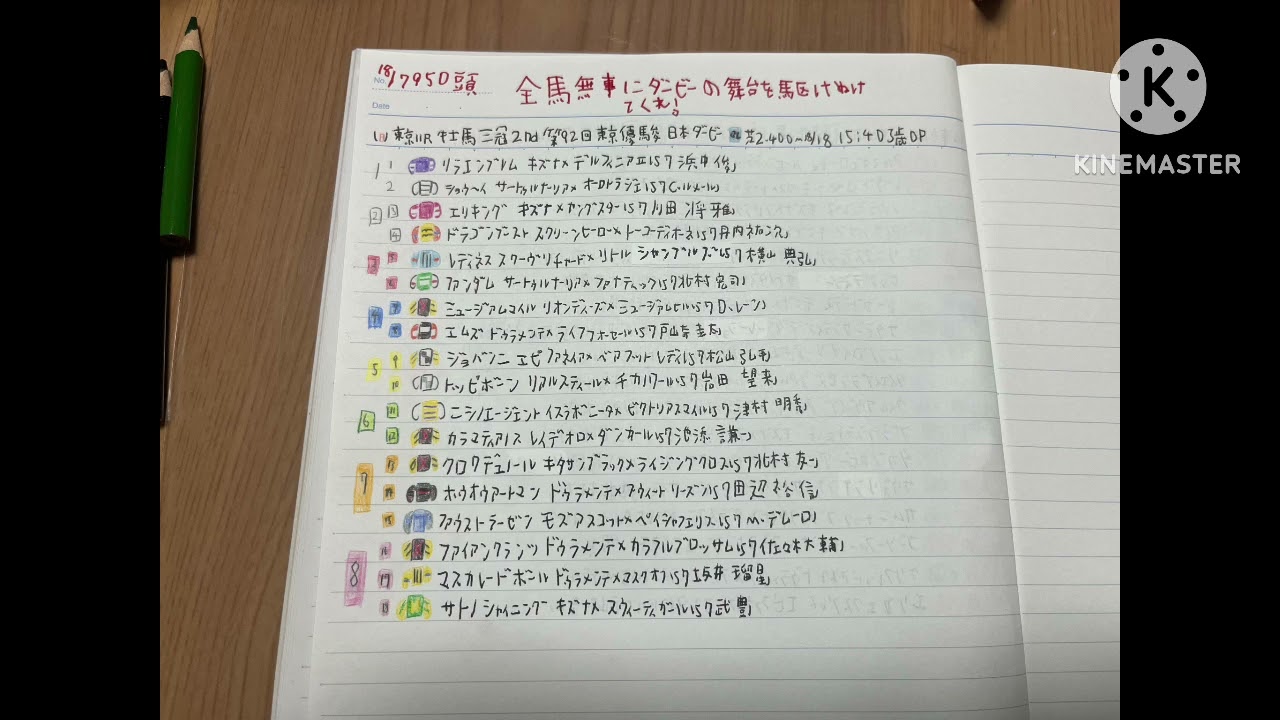 18/7950頭
No.
全馬無事にダービーの舞台を駆けぬけ
てくれ!
Date
東京11R 牡馬三冠2nd 第92回東京優駿 日本ダービー 芝2.400m 18 15:40 3歳OP
1 1 リラエンブレム キズナ×デルフィニアII 57 浜中俊
2 ショウヘイ サートゥルナーリア×オーロトラジェ 57 C.ルメール
2 3 エリキング キズナ×ヤングスター 57 川田 将雅
4 ドラゴンブースト スクリーンヒーロー×トーコーディオーネ 57 丹内祐次
3 5 レディネス スワーヴリチャード×リトル シャンブルズ 57 横山 典弘
6 ファンダム サートゥルナーリア×ファナティック 57 北村宏司
4 7 ミュージアムマイル リオンディーズ×ミュージアムヒル 57 D.レーン
8 エムズ ドゥラメンテ×ライフフォーセール 57 戸崎圭太
5 9 ジョバンニ エピファネイア×ベアフットレディ 57 松山弘平
10 トッピボーン リアルスティール×チカノワール 57 岩田 望来
6 11 ニシノエージェント イスラボニータ×ビクトリアスマイル 57 津村 明秀
12 カラマティアノス レイデオロ×ダンサール 57 池添 謙一
7 13 クロワデュノール キタサンブラック×ライジングクロス 57 北村 友一
14 ホウオウアートマン ドゥラメンテ×アウィートリーズン 57 田辺 裕信
15 ファウストラーゼン モズアスコット×ペイシャフェリス 57 M.デムーロ
8 16 ファイアンクランツ ドゥラメンテ×カラフルブロッサム 57 佐々木大輔
17 マスカレードボール ドゥラメンテ×マスクオフ 57 坂井 瑠星
18 サトノシャイニング キズナ×スウィーティガール 57 武 豊
K
KINEMASTER